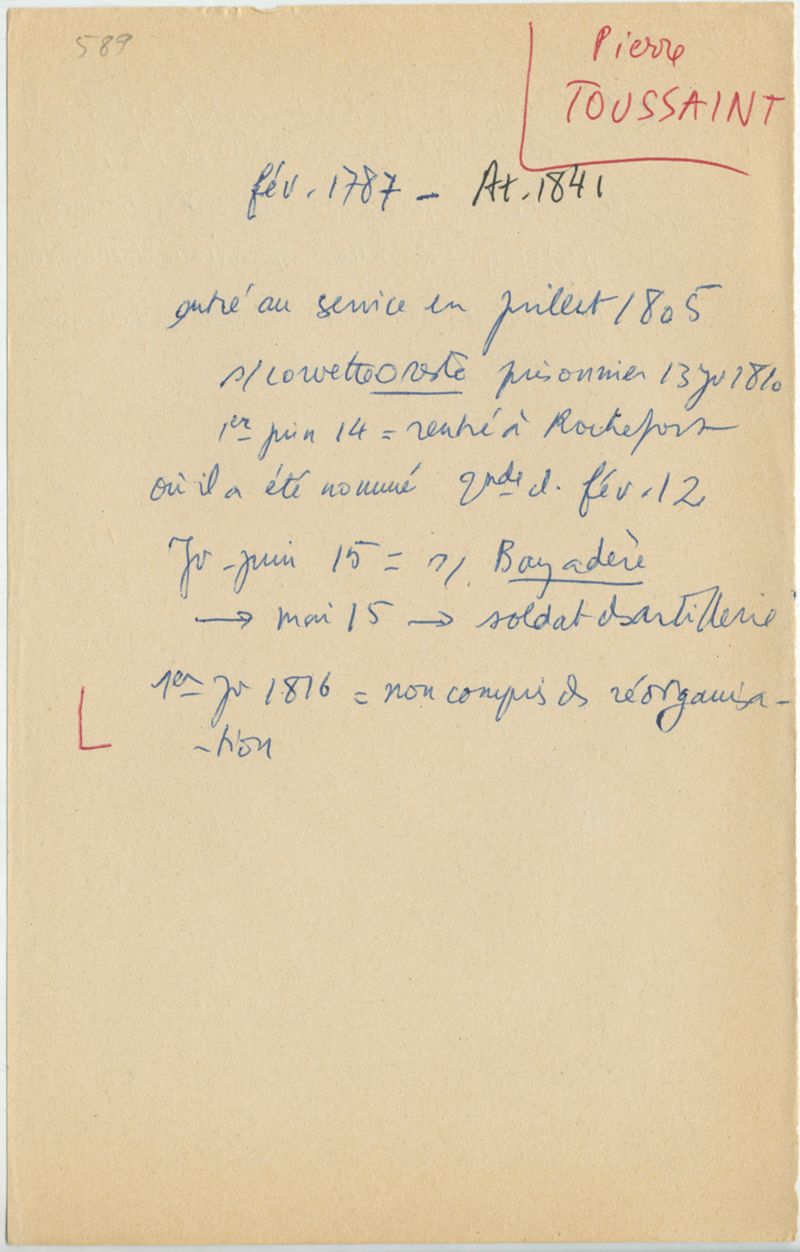 589
Pierre
TOUSSAINT
fév. 1787 - At. 1841
entré au service en juillet 1805
s/ corvette Oreste prisonnier 13 Jv 1810
1er juin 14 = rentré à Rochefort
où il a été nommé 2nde cl. fév. 12
Jv - juin 15 = s/ Bayadère
→ mai 15 → soldat ds artillerie
1er Jv 1816 = non compris ds réorganisa-
-tion